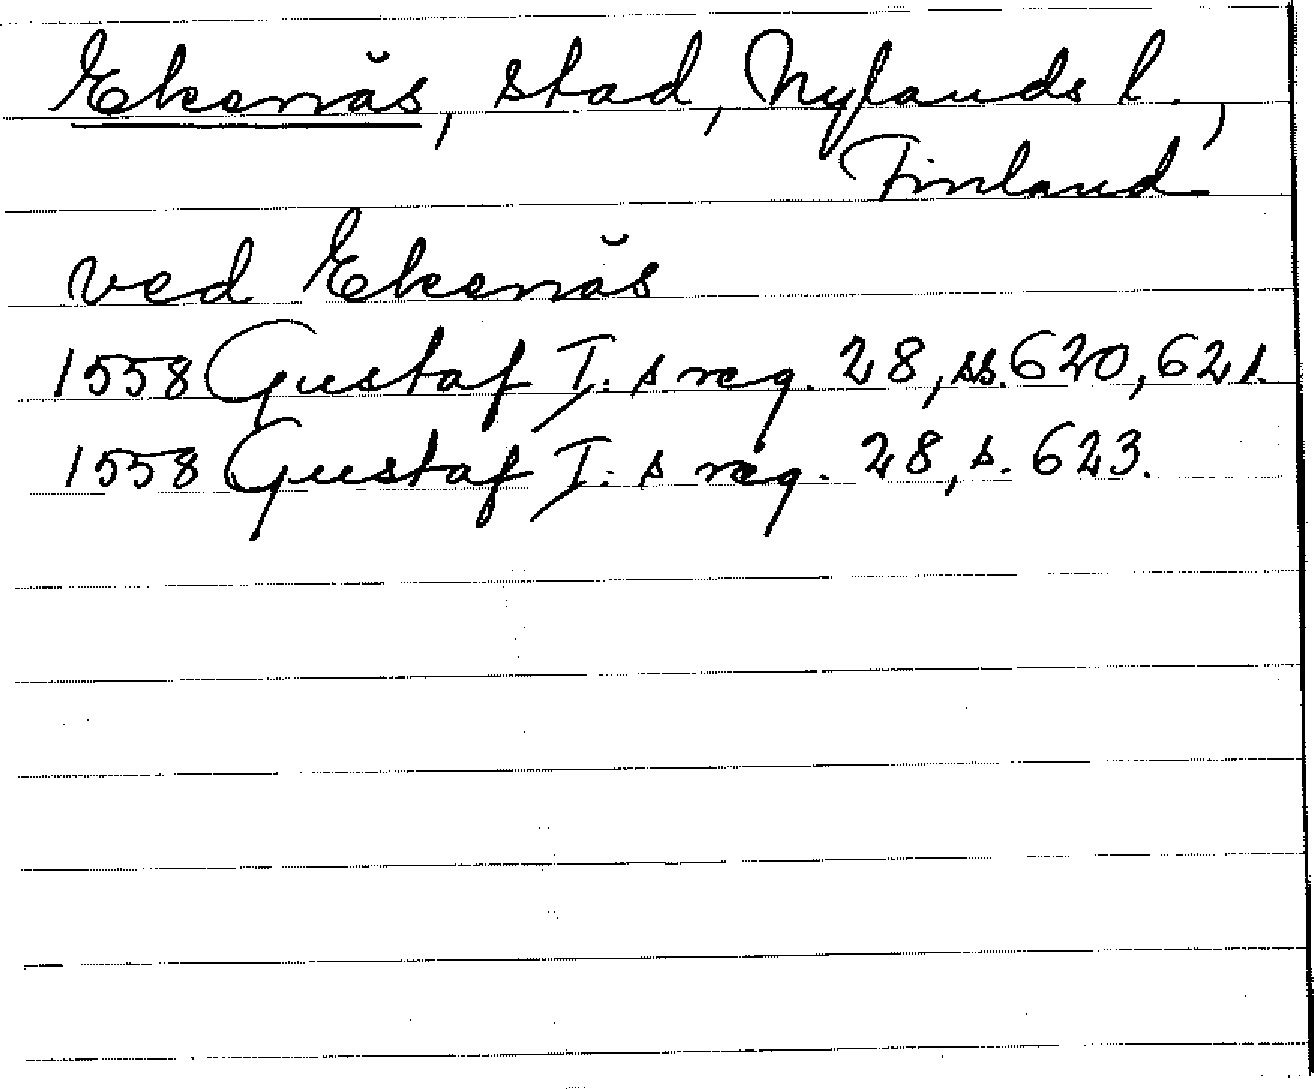 Ekenäs, stad, Nylands l.,
Finland
ved Ekenäs
1558 Gustaf I: s reg. 28, ss. 620, 621.
1558 Gustaf I: s reg. 28, s. 623.